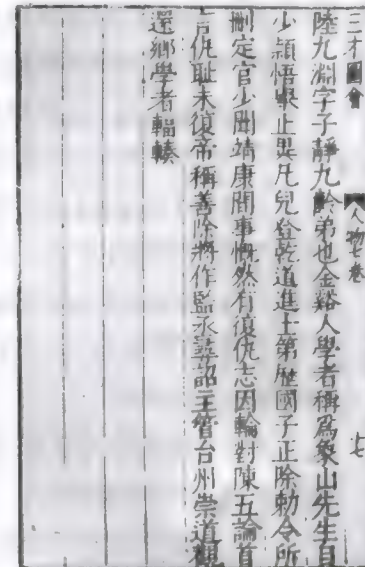 三才圖會 人物七卷 七
陸九淵字子靜九齡弟也金谿人學者稱爲象山先生自
少頴悟舉止異凡兒登乾道進士第歷國子正除勅令所
刪定官少聞靖康間事慨然有復仇志因輪對陳五論首
言仇耻未復帝稱善除將作監丞尋詔主管台州崇道觀
還鄉學者輻輳